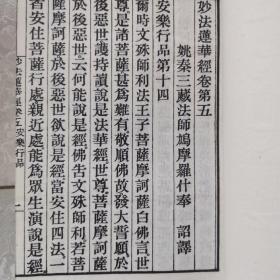 妙法蓮華經卷第五
姚秦三藏法師鳩摩羅什奉 詔譯
安樂行品第十四
爾時文殊師利法王子菩薩摩訶薩白佛言世
尊是諸菩薩甚為難有敬順佛故發大誓願於
後惡世護持讀說是法華經世尊菩薩摩訶薩
於後惡世云何能說是經佛告文殊師利若菩
薩摩訶薩於後惡世欲說是經當安住四法一
者安住菩薩行處親近處能為眾生演說是經
妙法蓮華經卷五 安樂行品 一